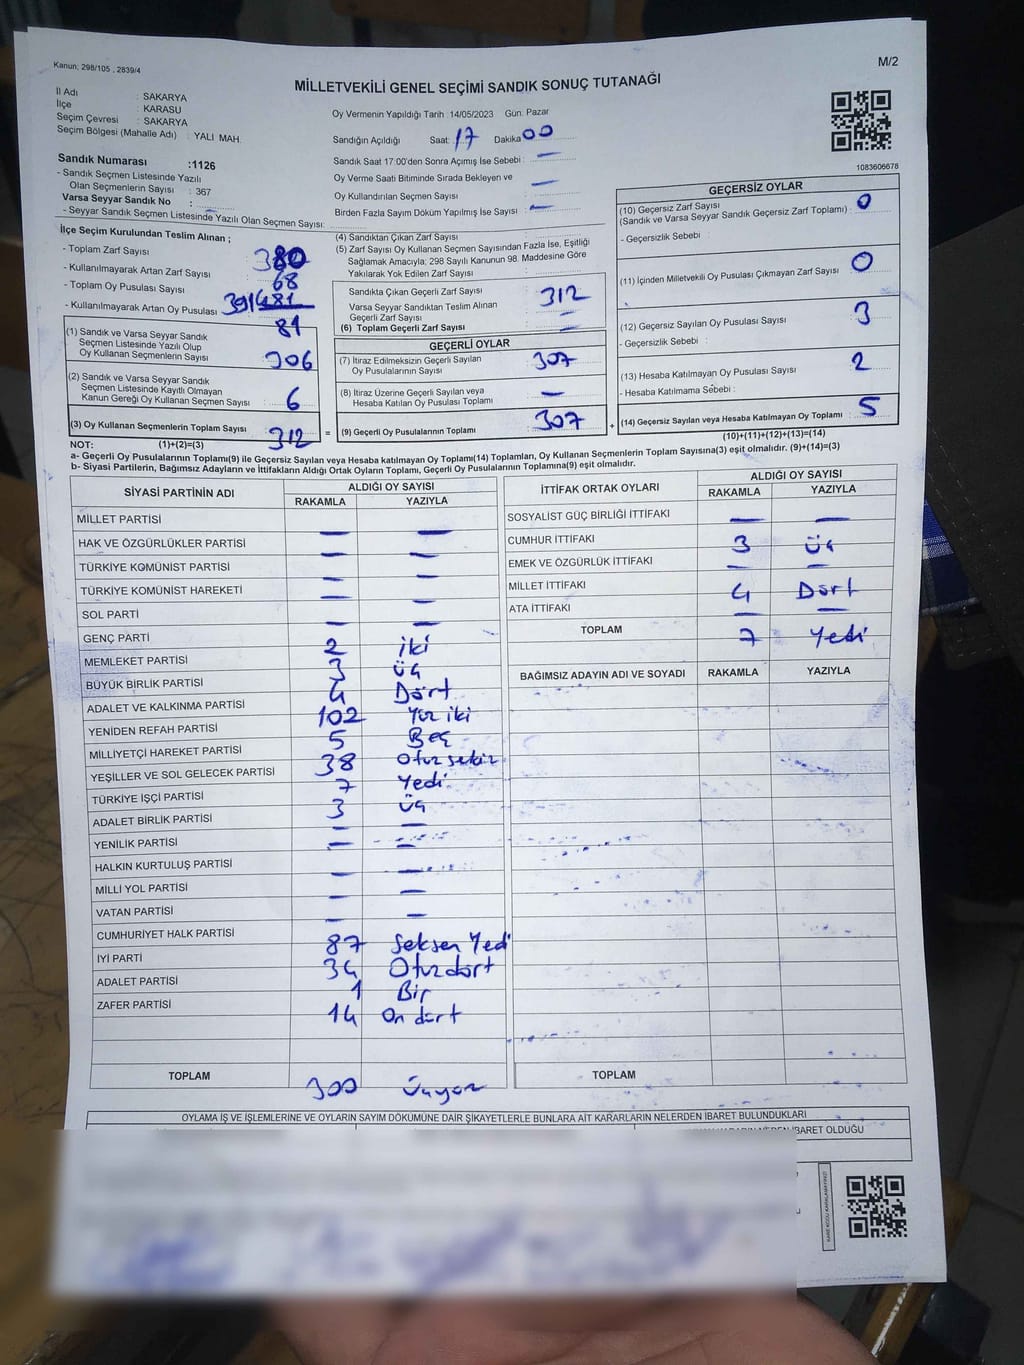 Kanun; 298/105 , 2839/4
M/2
MİLLETVEKİLİ GENEL SEÇİMİ SANDIK SONUÇ TUTANAĞI
İl Adı : SAKARYA
İlçe : KARASU
Seçim Çevresi : SAKARYA
Seçim Bölgesi (Mahalle Adı) : YALI MAH.
Sandık Numarası :1126
- Sandık Seçmen Listesinde Yazılı
Olan Seçmenlerin Sayısı : 367
Varsa Seyyar Sandık No :
- Seyyar Sandık Seçmen Listesinde Yazılı Olan Seçmen Sayısı:
Oy Vermenin Yapıldığı Tarih :14/05/2023 Gün: Pazar
Sandığın Açıldığı Saat: 17 Dakika: 00
Sandık Saat 17:00'den Sonra Açımış İse Sebebi : —
Oy Verme Saati Bitiminde Sırada Bekleyen ve
Oy Kullandırılan Seçmen Sayısı : —
Birden Fazla Sayım Döküm Yapılmış İse Sayısı : —
1083606678
İlçe Seçim Kurulundan Teslim Alınan ;
- Toplam Zarf Sayısı : 380
- Kullanılmayarak Artan Zarf Sayısı : 68
- Toplam Oy Pusulası Sayısı :
- Kullanılmayarak Artan Oy Pusulası : 81
(1) Sandık ve Varsa Seyyar Sandık
Seçmen Listesinde Yazılı Olup
Oy Kullanan Seçmenlerin Sayısı : 306
(2) Sandık ve Varsa Seyyar Sandık
Seçmen Listesinde Kayıtlı Olmayan
Kanun Gereği Oy Kullanan Seçmen Sayısı : 6
(3) Oy Kullanan Seçmenlerin Toplam Sayısı : 312
(1)+(2)=(3)
(4) Sandıktan Çıkan Zarf Sayısı :
(5) Zarf Sayısı Oy Kullanan Seçmen Sayısından Fazla İse, Eşitliği
Sağlamak Amacıyla; 298 Sayılı Kanunun 98. Maddesine Göre
Yakılarak Yok Edilen Zarf Sayısı :
Sandıkta Çıkan Geçerli Zarf Sayısı : 312
Varsa Seyyar Sandıktan Teslim Alınan
Geçerli Zarf Sayısı : —
(6) Toplam Geçerli Zarf Sayısı : —
GEÇERLİ OYLAR
(7) İtiraz Edilmeksizin Geçerli Sayılan
Oy Pusulalarının Sayısı : 307
(8) İtiraz Üzerine Geçerli Sayılan veya
Hesaba Katılan Oy Pusulası Toplamı : —
= (9) Geçerli Oy Pusulalarının Toplamı : 307 +
GEÇERSİZ OYLAR
(10) Geçersiz Zarf Sayısı
(Sandık ve Varsa Seyyar Sandık Geçersiz Zarf Toplamı) : 0
- Geçersizlik Sebebi :
(11) İçinden Milletvekili Oy Pusulası Çıkmayan Zarf Sayısı : 0
(12) Geçersiz Sayılan Oy Pusulası Sayısı : 3
- Geçersizlik Sebebi :
(13) Hesaba Katılmayan Oy Pusulası Sayısı : 2
- Hesaba Katılmama Sebebi :
(14) Geçersiz Sayılan veya Hesaba Katılmayan Oy Toplamı : 5
(10)+(11)+(12)+(13)=(14)
NOT:
a- Geçerli Oy Pusulalarının Toplamı(9) ile Geçersiz Sayılan veya Hesaba katılmayan Oy Toplamı(14) Toplamları, Oy Kullanan Seçmenlerin Toplam Sayısına(3) eşit olmalıdır. (9)+(14)=(3)
b- Siyasi Partilerin, Bağımsız Adayların ve İttifakların Aldığı Ortak Oyların Toplamı, Geçerli Oy Pusulalarının Toplamına(9) eşit olmalıdır.
SİYASİ PARTİNİN ADI ALDIĞI OY SAYISI
RAKAMLA YAZIYLA
MİLLET PARTİSİ — —
HAK VE ÖZGÜRLÜKLER PARTİSİ — —
TÜRKİYE KOMÜNİST PARTİSİ — —
TÜRKİYE KOMÜNİST HAREKETİ — —
SOL PARTİ — —
GENÇ PARTİ 2 iki
MEMLEKET PARTİSİ 3 üç
BÜYÜK BİRLİK PARTİSİ 4 Dört
ADALET VE KALKINMA PARTİSİ 102 Yüz iki
YENİDEN REFAH PARTİSİ 5 Beş
MİLLİYETÇİ HAREKET PARTİSİ 38 Otuz sekiz
YEŞİLLER VE SOL GELECEK PARTİSİ 7 Yedi
TÜRKİYE İŞÇİ PARTİSİ 3 üç
ADALET BİRLİK PARTİSİ — —
YENİLİK PARTİSİ — —
HALKIN KURTULUŞ PARTİSİ — —
MİLLİ YOL PARTİSİ — —
VATAN PARTİSİ — —
CUMHURİYET HALK PARTİSİ 87 Seksen Yedi
İYİ PARTİ 34 Otuzdört
ADALET PARTİSİ 1 Bir
ZAFER PARTİSİ 14 On dört
TOPLAM 300 üçyüz
İTTİFAK ORTAK OYLARI ALDIĞI OY SAYISI
RAKAMLA YAZIYLA
SOSYALİST GÜÇ BİRLİĞİ İTTİFAKI — —
CUMHUR İTTİFAKI 3 üç
EMEK VE ÖZGÜRLÜK İTTİFAKI — —
MİLLET İTTİFAKI 4 Dört
ATA İTTİFAKI — —
TOPLAM 7 Yedi
BAĞIMSIZ ADAYIN ADI VE SOYADI RAKAMLA YAZIYLA
TOPLAM
OYLAMA İŞ VE İŞLEMLERİNE VE OYLARIN SAYIM DÖKÜMÜNE DAİR ŞİKAYETLERLE BUNLARA AİT KARARLARIN NELERDEN İBARET BULUNDUKLARI
İBARET OLDUĞU